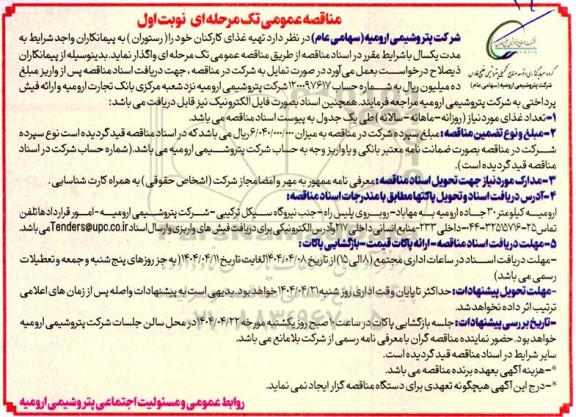 مناقصه عمومی تک مرحله ای نوبت اول
شرکت پتروشیمی ارومیه (سهامی عام) در نظر دارد تهیه غذای کارکنان خود را (رستوران) به پیمانکاران واجد شرایط به
مدت یکسال با شرایط مقرر در اسناد مناقصه از طریق مناقصه عمومی تک مرحله ای واگذار نماید. بدینوسیله از پیمانکاران
ذیصلاح درخواست بعمل می آورد در صورت تمایل به شرکت در مناقصه، جهت دریافت اسناد مناقصه پس از واریز مبلغ
گروه سرمایه گذاری و توسعه صنایع تکمیلی پتروشیمی خلیج فارس
شرکت پتروشیمی ارومیه (سهامی عام)
ده میلیون ریال به شماره حساب ۱۳۰۰۰۹۷۶۱۷ شرکت پتروشیمی ارومیه نزد شعبه مرکزی بانک تجارت ارومیه و ارائه فیش
پرداختی به شرکت پتروشیمی ارومیه مراجعه فرمایند. همچنین اسناد بصورت فایل الکترونیک نیز قابل دریافت می باشد:
۱-تعداد غذای مورد نیاز (روزانه-ماهانه-سالانه) طی یک جدول به پیوست اسناد مناقصه می باشد.
۲-مبلغ و نوع تضمین مناقصه: مبلغ سپرده شرکت در مناقصه به میزان ۶/۰۴۰/۰۰۰/۰۰۰ ریال می باشد که در اسناد مناقصه قید گردیده است نوع سپرده
شرکت در مناقصه بصورت ضمانت نامه معتبر بانکی و یا واریز وجه به حساب شرکت پتروشیمی ارومیه می باشد. (شماره حساب شرکت در اسناد
مناقصه قید گردیده است).
۳-مدارک مورد نیاز جهت تحویل اسناد مناقصه: معرفی نامه ممهور به مهر و امضا مجاز شرکت (اشخاص حقوقی) به همراه کارت شناسایی.
۴-آدرس دریافت اسناد و تحویل پاکتها مطابق با مندرجات اسناد مناقصه:
ارومیه کیلومتر ۳۰ جاده ارومیه به مهاباد- روبروی پلیس راه- جنب نیروگاه سیکل ترکیبی- شرکت پتروشیمی ارومیه- امور قراردادها تلفن
تماس ۲۵-۳۲۲۵۱۷۱۶-۰۴۴-داخلی ۲۳۳- منابع انسانی داخلی ۲۱۷ آدرس الکترونیکی برای دریافت فیش های واریزی و ارسال اسناد Tenders@upc.co.ir می باشد.
۵-مهلت دریافت اسناد مناقصه- ارائه پاکات قیمت- بازگشایی پاکات:
-مهلت دریافت اسناد در ساعات اداری مجتمع (۸ الی ۱۵) از تاریخ ۱۴۰۴/۰۴/۰۸ لغایت تاریخ ۱۴۰۴/۰۴/۱۱ به جز روزهای پنج شنبه و جمعه و تعطیلات
رسمی می باشد)
-مهلت تحویل پیشنهادات: حداکثر تا پایان وقت اداری روز شنبه ۱۴۰۴/۰۴/۲۱ خواهد بود. بدیهی است به پیشنهادات واصله پس از زمان های اعلامی
ترتیب اثر داده نخواهد شد.
-تاریخ بررسی پیشنهادات: جلسه بازگشایی پاکات در ساعت ۱۰ صبح روز یکشنبه مورخه ۱۴۰۴/۰۴/۲۲ در محل سالن جلسات شرکت پتروشیمی ارومیه
خواهد بود. حضور نماینده مناقصه گران با معرفی نامه رسمی از شرکت بلامانع می باشد.
سایر شرایط در اسناد مناقصه قید گردیده است.
*-هزینه آگهی بعهده برنده مناقصه می باشد.
*-درج این آگهی هیچگونه تعهدی برای دستگاه مناقصه گزار ایجاد نمی نماید.
روابط عمومی و مسئولیت اجتماعی پتروشیمی ارومیه